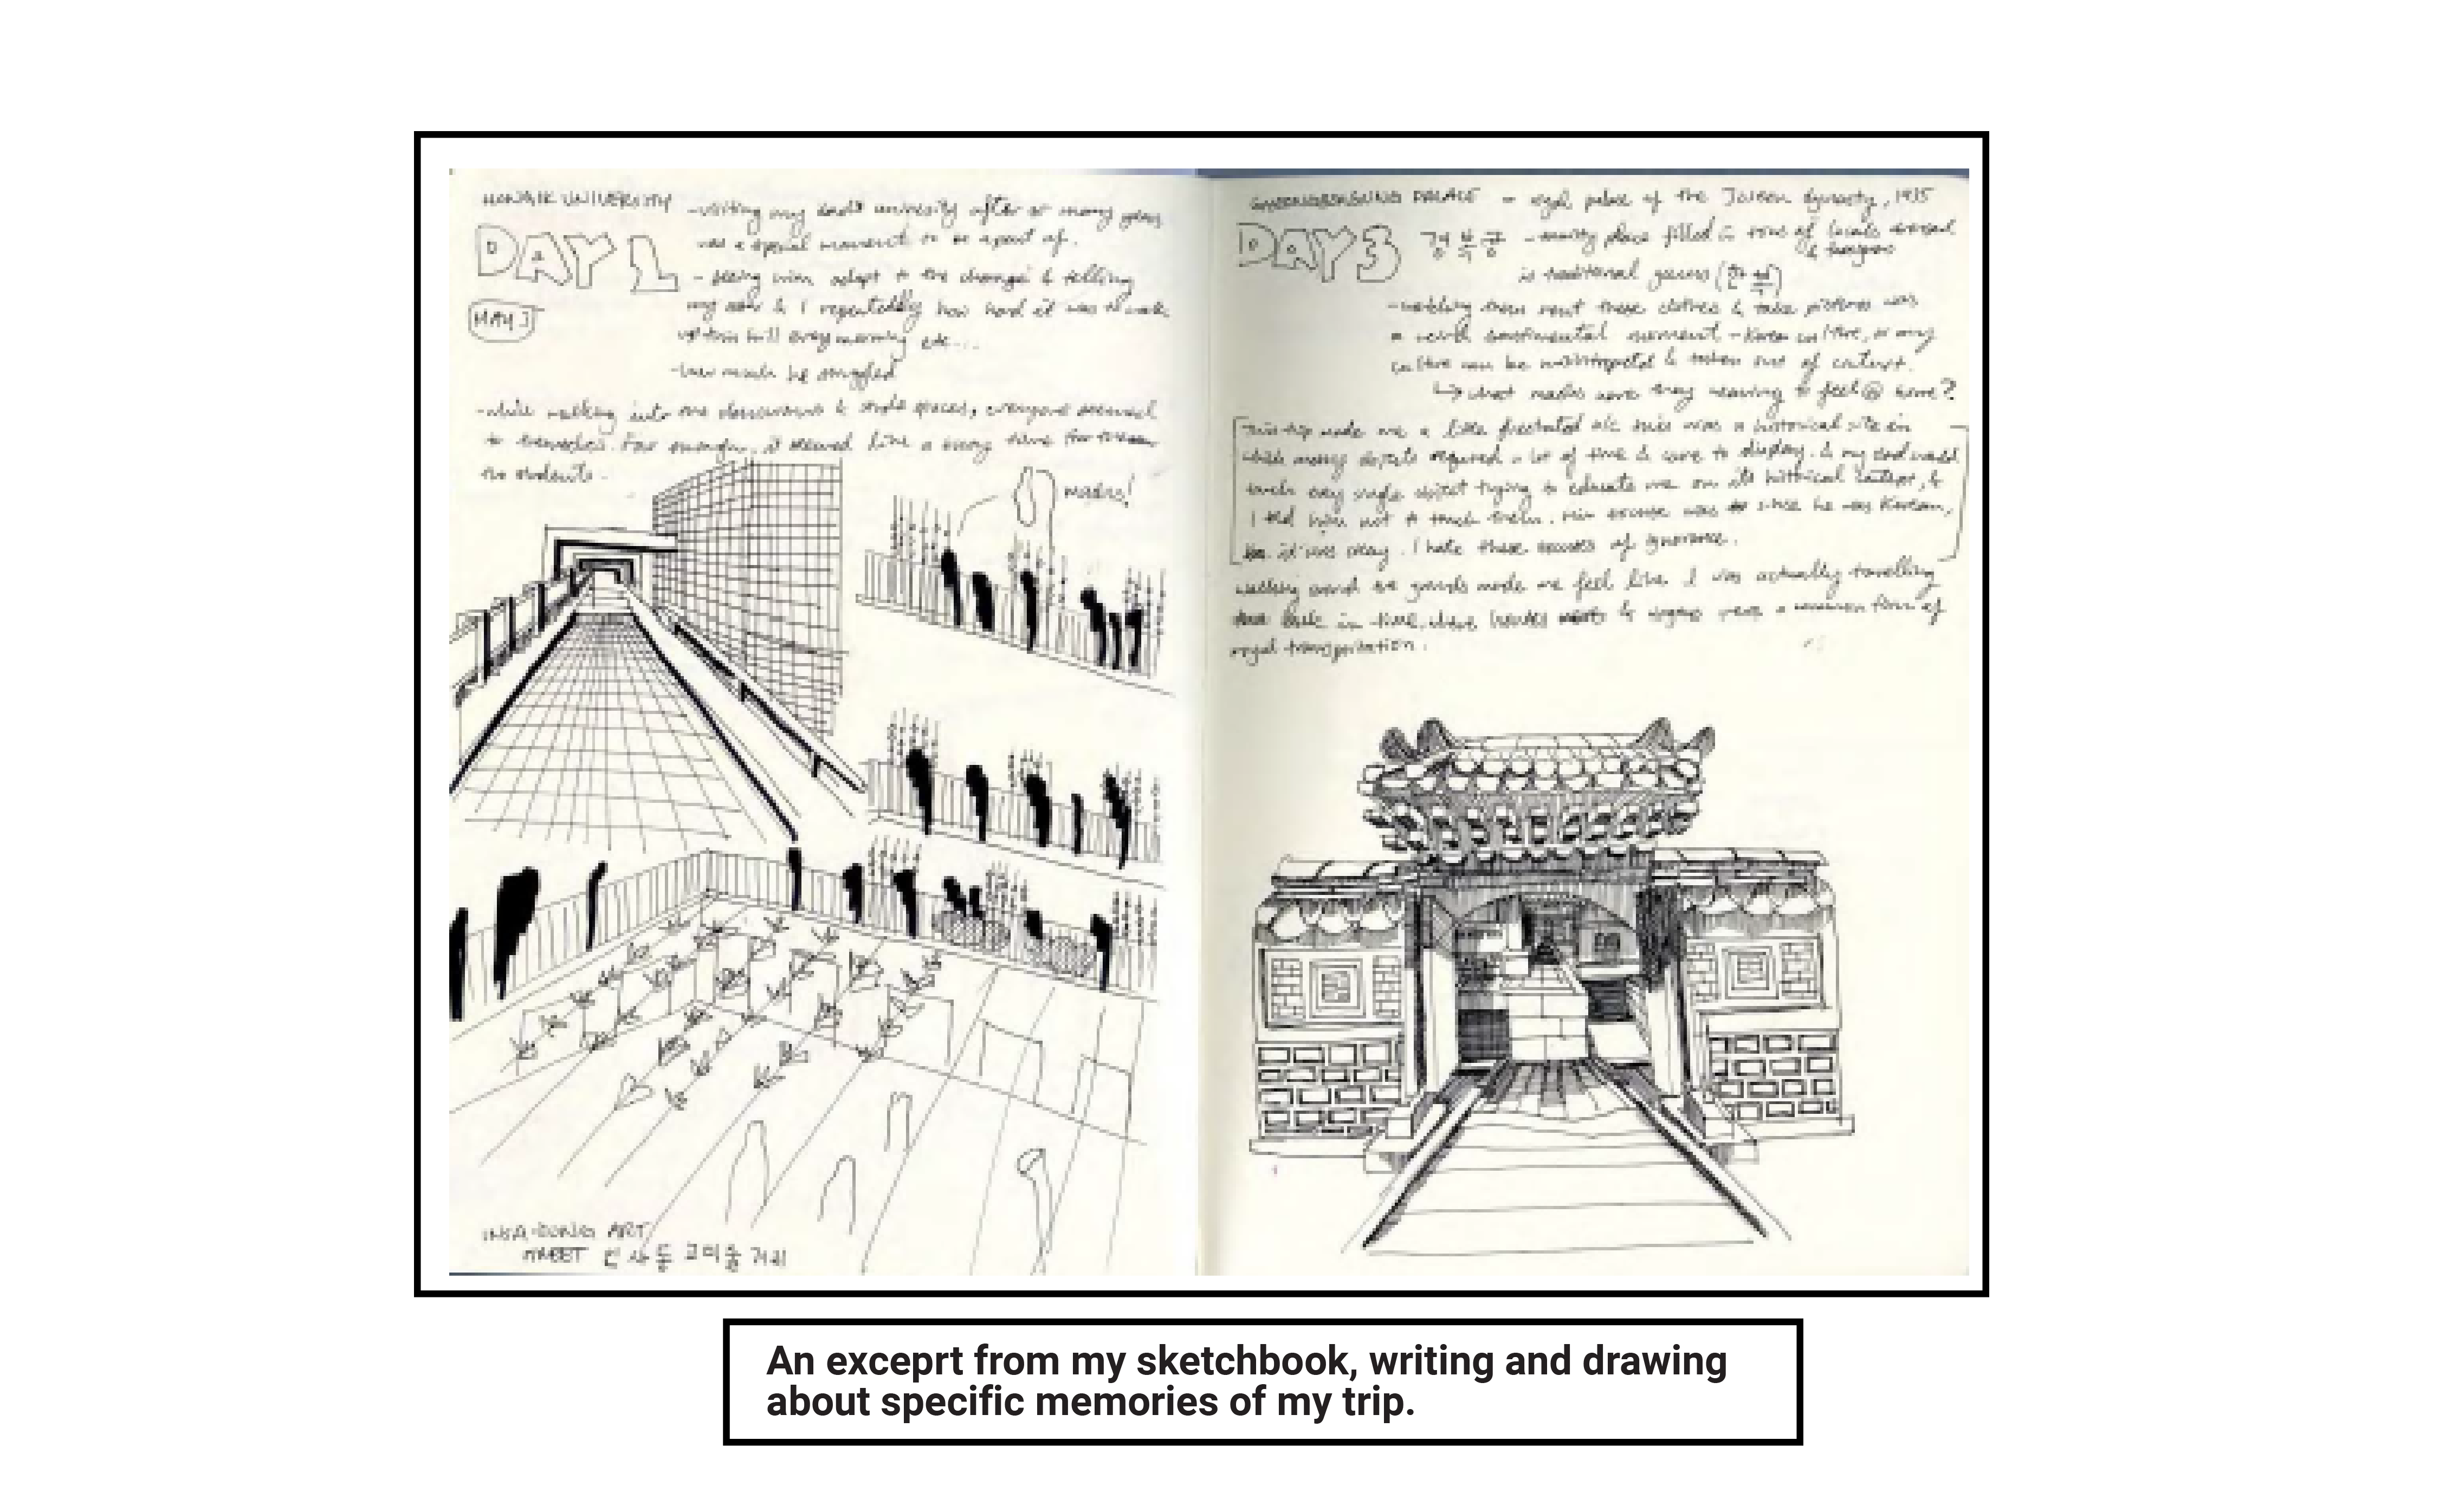 HONGIK UNIVERSITY
DAY 1
MAY 3
-visiting my dad's university after so many years
was a special moment to be a part of.
- seeing him adapt to the changes & telling
my & I repeatedly how hard it was to walk
up this hill every morning etc...
-how much he struggled
-while walking into the classrooms & studio spaces, everyone seemed
to . Fair enough, it seemed like a busy time for
the students.
masks!
INSA-DONG ART
STREET 인사동 거리
GYEONGBOKGUNG PALACE - royal palace of the Joseon dynasty, 1935
DAY 3
경복궁 - place filled tons of locals
& foreigners
in traditional (한복)
-watching them rent these clothes & take pictures was
a weird sentimental moment - Korean culture, or my
culture can be misinterpreted & taken out of context.
↳ what masks were they wearing to feel @ home?
This trip made me a little frustrated b/c this was a historical site in
which many objects required a lot of time & care to display. & my dad would
touch every single object trying to educate me on its historical context, &
I told him not to touch them. His excuse was since he was Korean,
it was okay. I hate these excuses of ignorance.
walking around the grounds made me feel like I was actually travelling
back in time, where horses & were a common form of
royal transportation.
An exceprt from my sketchbook, writing and drawing
about specific memories of my trip.